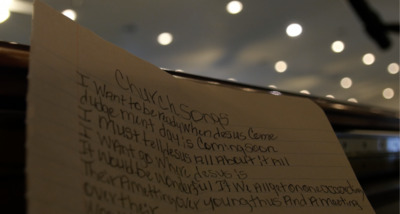 Church songs
I Want to be Ready When Jesus Come
Judge ment day is Coming soon
I Must tell Jesus All About it All
I Want go Where Jesus is
It Would be Wonderful If We All get on one
Their A meeting over you
over there